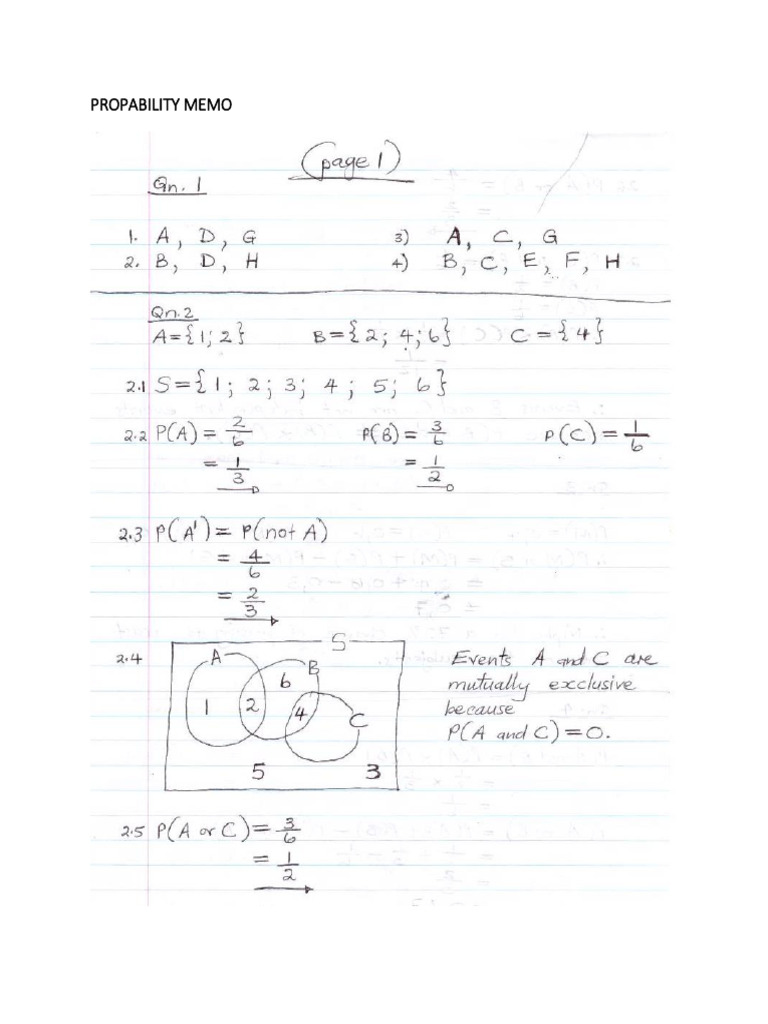 PROPABILITY MEMO
(page 1)
Qn. 1
1. A, D, G 3) A, C, G
2. B, D, H 4) B, C, E, F, H
Qn.2
A={1;2} B={2; 4;6} C={4}
2.1 S={1; 2; 3; 4; 5; 6}
2.2 P(A) = 2/6 P(B) = 3/6 P(C) = 1/6
= 1/3 = 1/2
2.3 P(A') = P(not A)
= 4/6
= 2/3
2.4 S
A B
6
1 2 4 C
5 3
Events A and C are
mutually exclusive
because
P(A and C)=0.
2.5 P(A or C) = 3/6
= 1/2